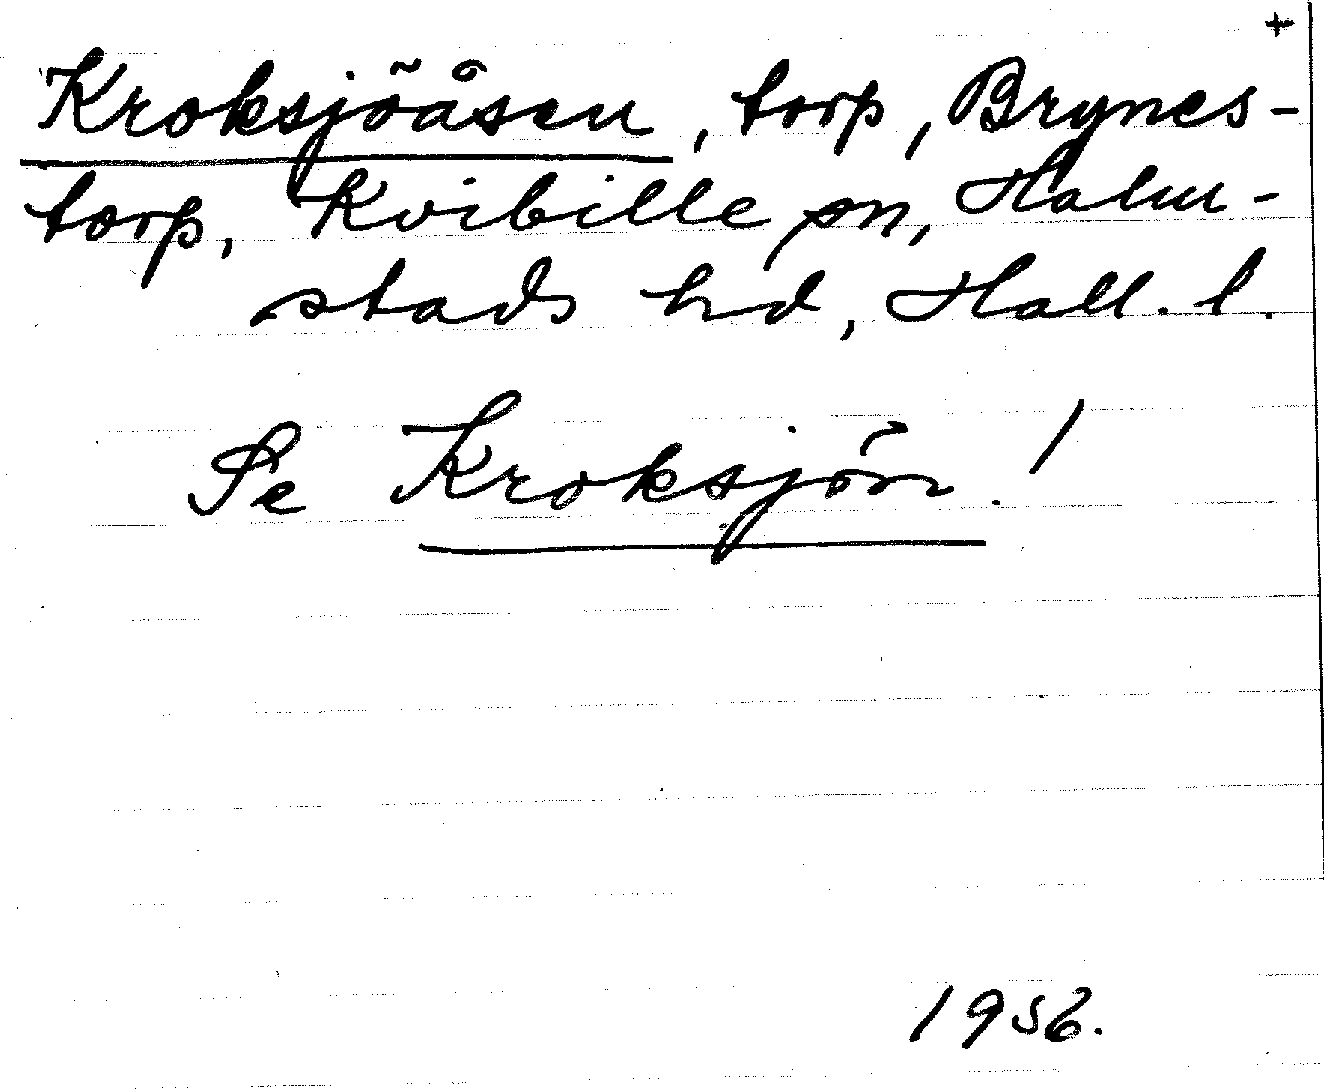 +
Kroksjöåsen, torp, Brynes-
torp, Kvibille sn, Halm-
stads hd, Hall. l.
Se Kroksjön!
1956.